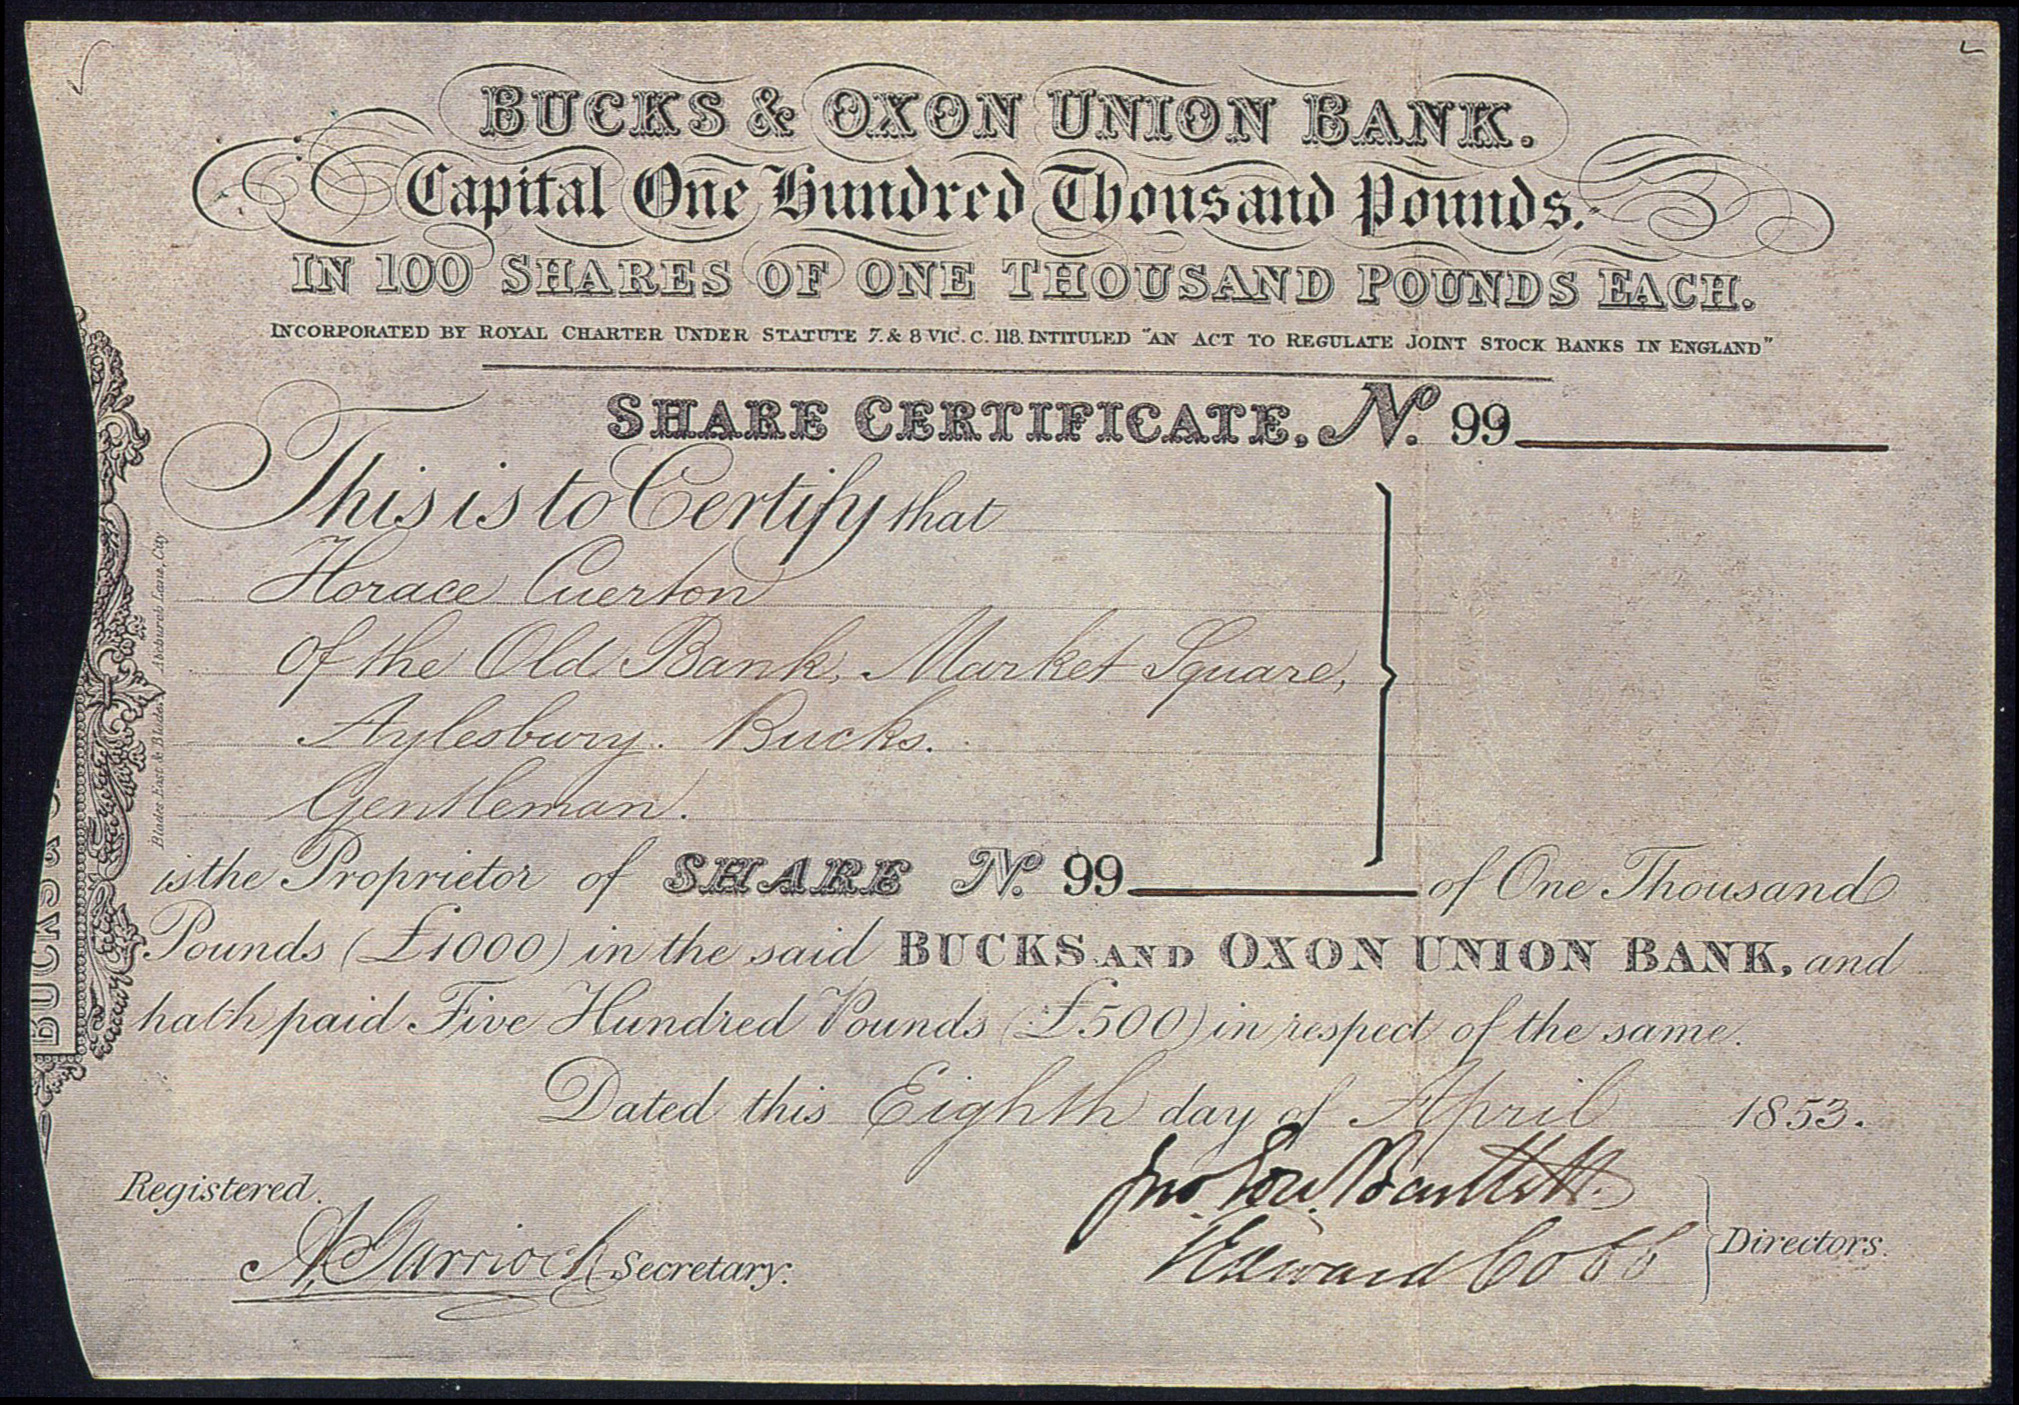 BUCKS & OXON UNION BANK.
Capital One Hundred Thousand Pounds.
IN 100 SHARES OF ONE THOUSAND POUNDS EACH.
INCORPORATED BY ROYAL CHARTER UNDER STATUTE 7. & 8 VIC. C. 118. INTITULED "AN ACT TO REGULATE JOINT STOCK BANKS IN ENGLAND"
SHARE CERTIFICATE, No. 99
This is to Certify that
Horace Cuerton
of the Old Bank, Market Square,
Aylesbury. Bucks.
Gentleman.
is the Proprietor of SHARE No. 99 of One Thousand
Pounds (£1000) in the said BUCKS AND OXON UNION BANK, and
hath paid Five Hundred Pounds (£500) in respect of the same.
Dated this Eighth day of April 1853.
Registered.
A. Garrioch Secretary.
Jno Bartlett
Edward Cobb
Directors.
Blades East & Blades, Abchurch Lane, City
BUCKS &